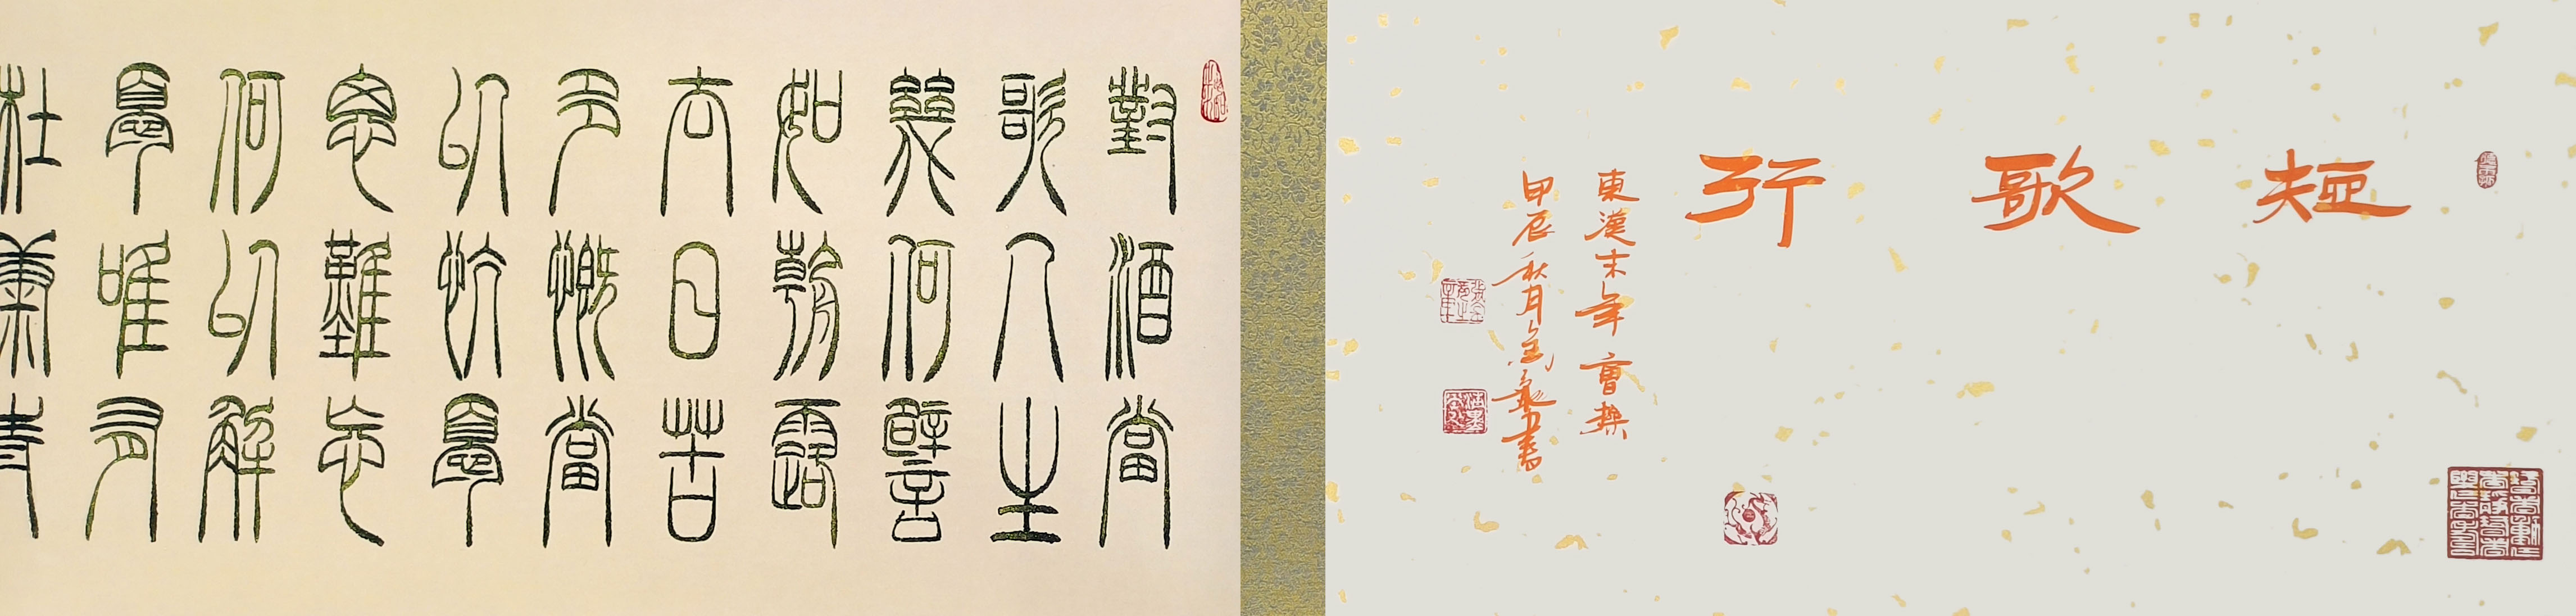 短歌行
東漢末年曹操
甲辰秋月書
對酒當
歌人生
幾何譬
如朝露
去日苦
多慨當
以忼憂
思難忘
何以解
憂唯有
杜康